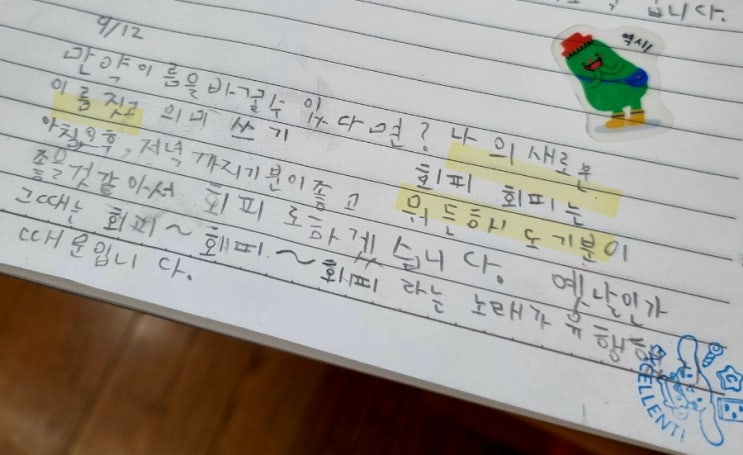 습니다.
9/12
역시!
만약 이름을 바꿀수 있다면? 나의 새로운
이름 짓고 의미 쓰기
회피 회피는
아침, 오후, 저녁 까지 기분이 좋고 모든 음식도 기분이
좋을것 같아서 회피로 하겠습니다. 옛날인가
그때는 회피~ 해피~ 회피 라는 노래가 유행
때문입니다.
EXCELLENT!